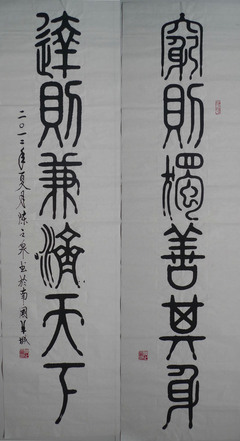 窮則獨善其身
達則兼濟天下
二〇一二年夏月 书於南國